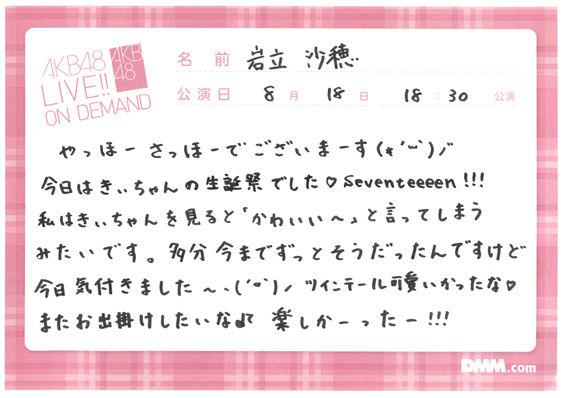 AKB48
LIVE!!
ON DEMAND
AKB
48
名前 岩立 沙穂
公演日 8月 18日 18:30 公演
やっほー さっほーでございまーす(*'ω')ノ
今日はきぃちゃんの生誕祭でした♡Seventeeeen!!!
私はきぃちゃんを見ると「かわいい〜」と言ってしまう
みたいです。多分今までずっとそうだったんですけど
今日気付きました〜、(´ω`)ノ ツインテール可愛いかったな♡
またお出掛けしたいな♪ 楽しかーったー!!!
DMM.com